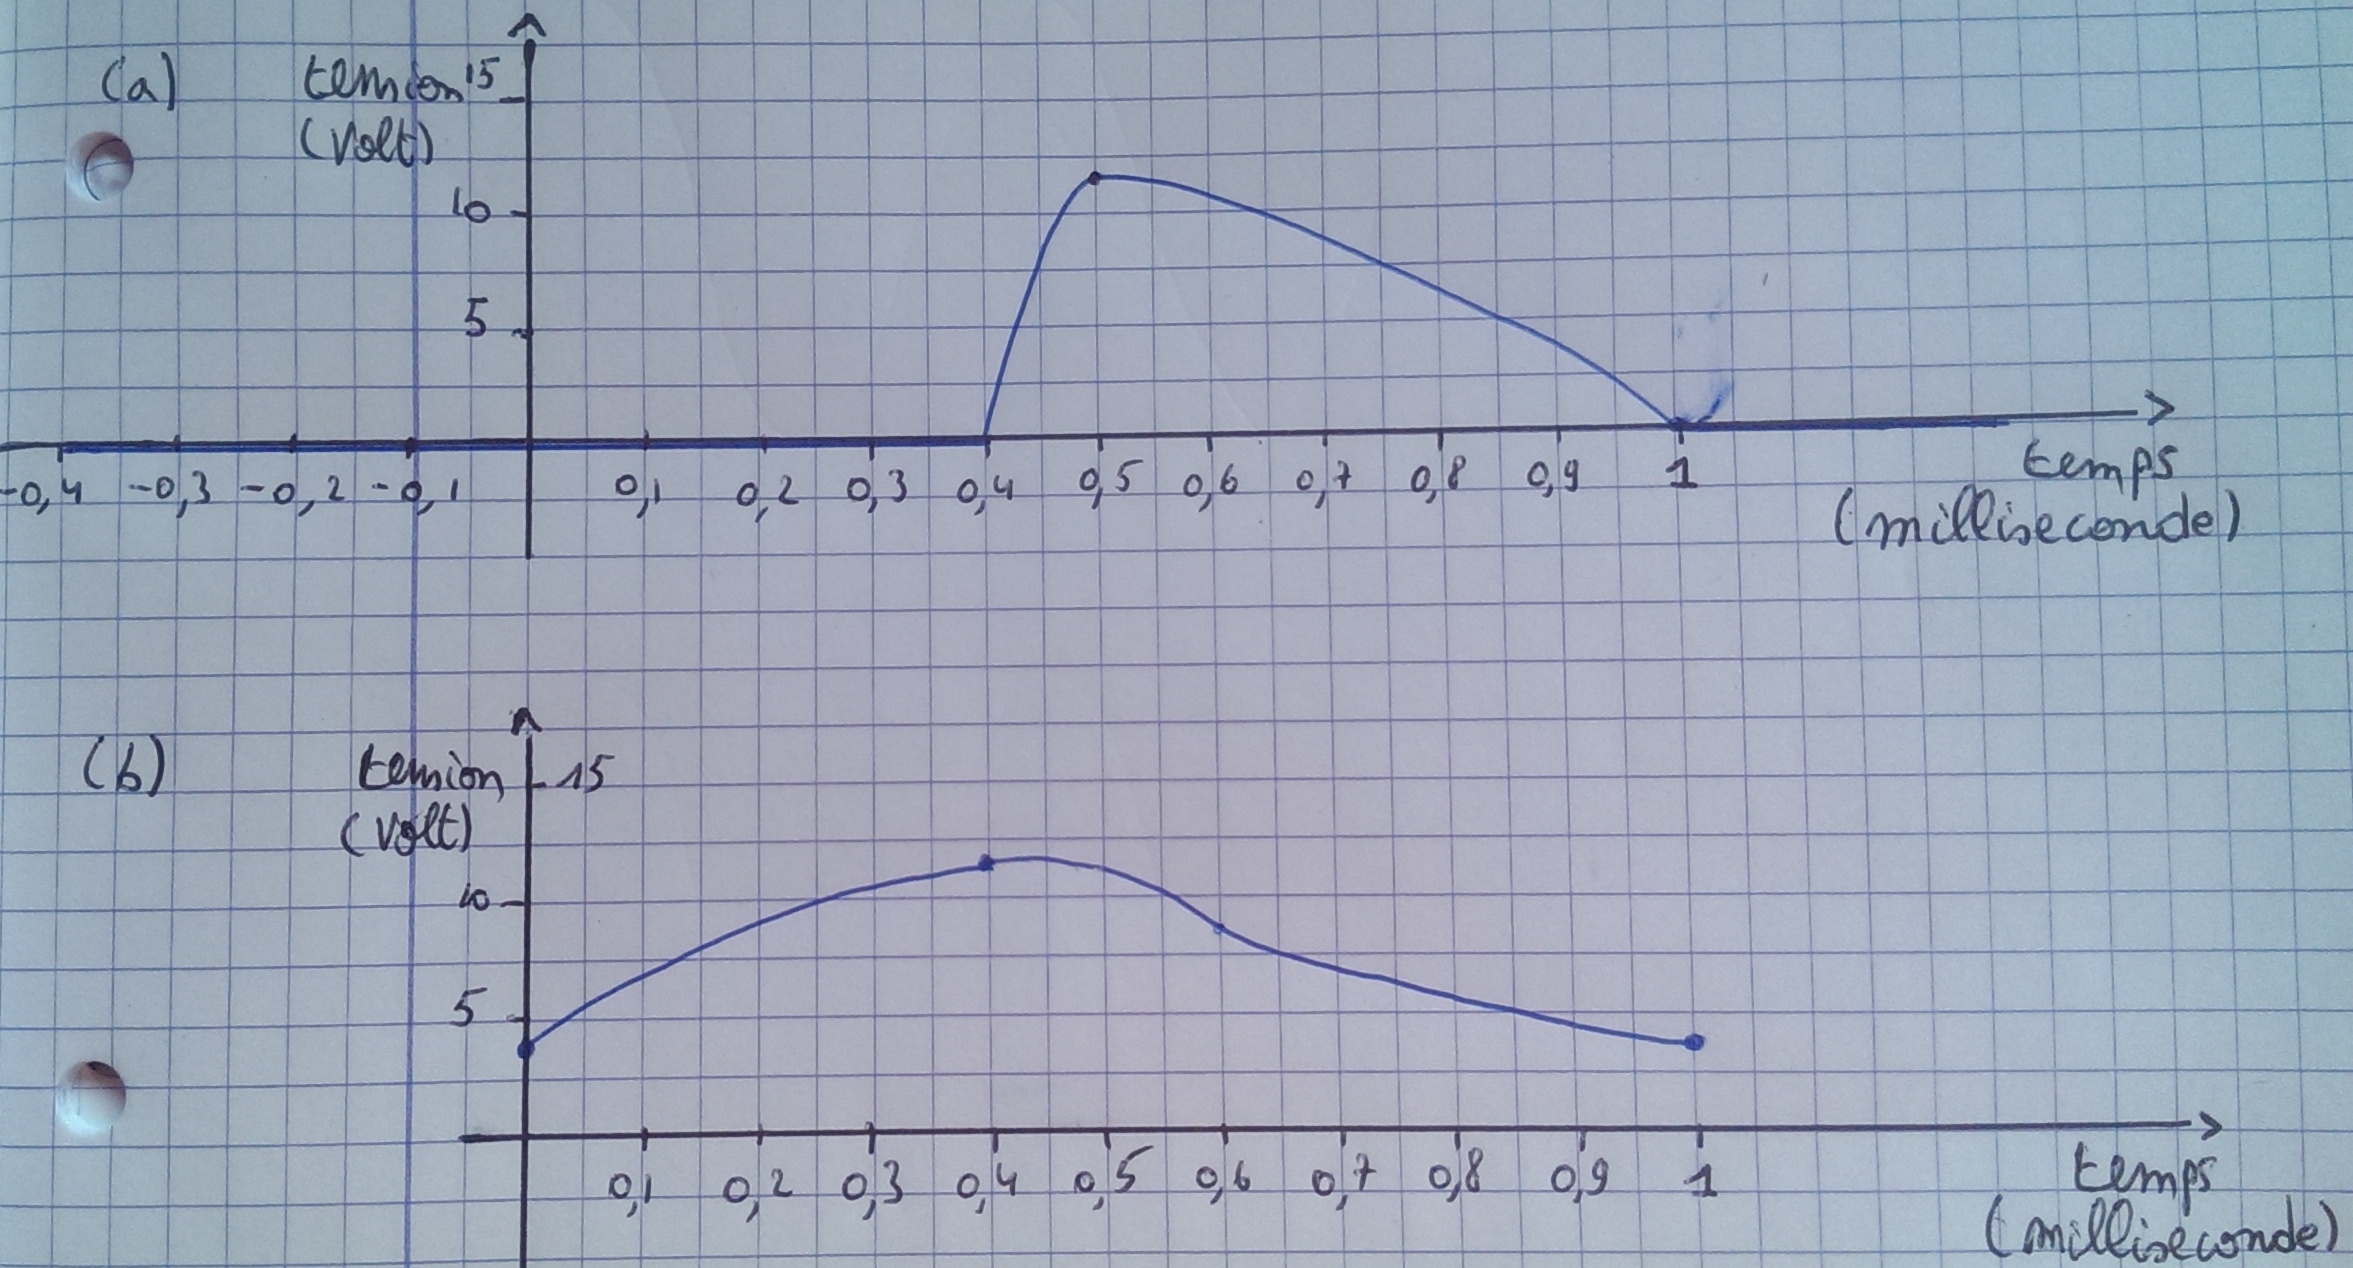 (a) tension 15
(volt)
10
5
-0,4 -0,3 -0,2 -0,1 0,1 0,2 0,3 0,4 0,5 0,6 0,7 0,8 0,9 1 temps
(milliseconde)
(b) tension 15
(volt)
10
5
0,1 0,2 0,3 0,4 0,5 0,6 0,7 0,8 0,9 1 temps
(milliseconde)